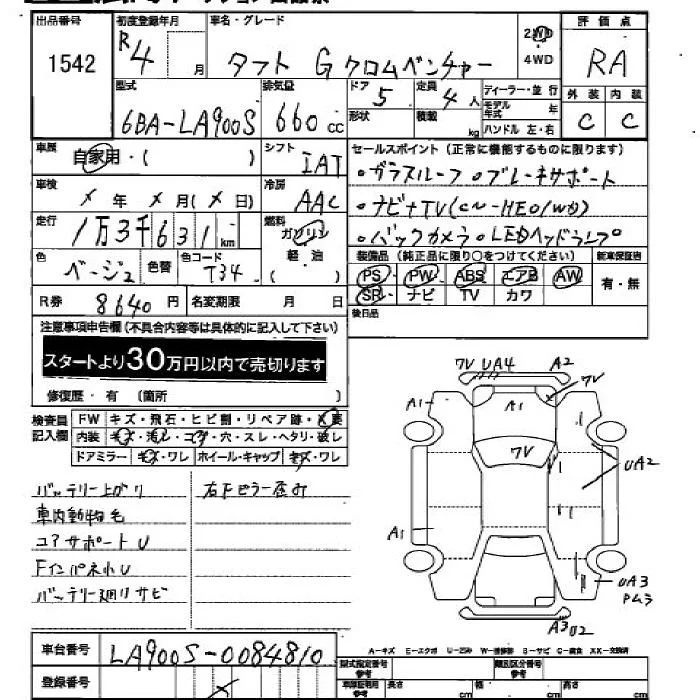 出品番号 初度登録年月 車名・グレード 評価点
1542 R4 月 タフト G クロムベンチャー 2WD 4WD RA
型式 排気量 ドア 定員 ディーラー・並行 外装 内装
6BA-LA900S 660 cc 5 4人 モデル年式 年 C C
形状 積載 kg ハンドル 左・右
車歴 自家用・( ) シフト IAT セールスポイント(正常に機能するものに限ります)
。ガラスルーフ 。ブレーキサポート
車検 メ 年 メ 月(メ 日) 冷房 AAC
。ナビナTV(
走行 1万3千631 km 燃料 ガソリン 軽油 ( )
。バックカメラ 。LEDヘッドランプ
色 ベージュ 色替 色コード T34
装備品(純正品に限り○をつけてください) 新車保証書
PS PW ABS エアB AW 有・無
SR ナビ TV カワ
R券 8640円 名変期限 月 日 後日品
注意事項申告欄(不具合内容等は具体的に記入して下さい)
スタートより30万円以内で売切ります
修復歴・有 (箇所 )
検査員記入欄 FW キズ・飛石・ヒビ割・リペア跡・✕要
内装 キズ・汚レ・コゲ・穴・スレ・ヘタリ・破レ
ドアミラー キズ・ワレ ホイール・キャップ キズ・ワレ
7V UA4 A2
7V
A1 A1
7V
UA2
A1
UA3
Pムラ
A3 U2
バッテリー上がり 右下ピラー歪み
車内動物毛
コアサポートU
Fインパネ小U
バッテリー廻りサビ
A-キズ E-エクボ U-凹み W-補修跡 S-サビ C-腐食 XX-交換済
車台番号 LA900S-0084810
型式指定番号 参考 類別区分番号 参考
登録番号 長さ cm 幅 cm 高さ cm